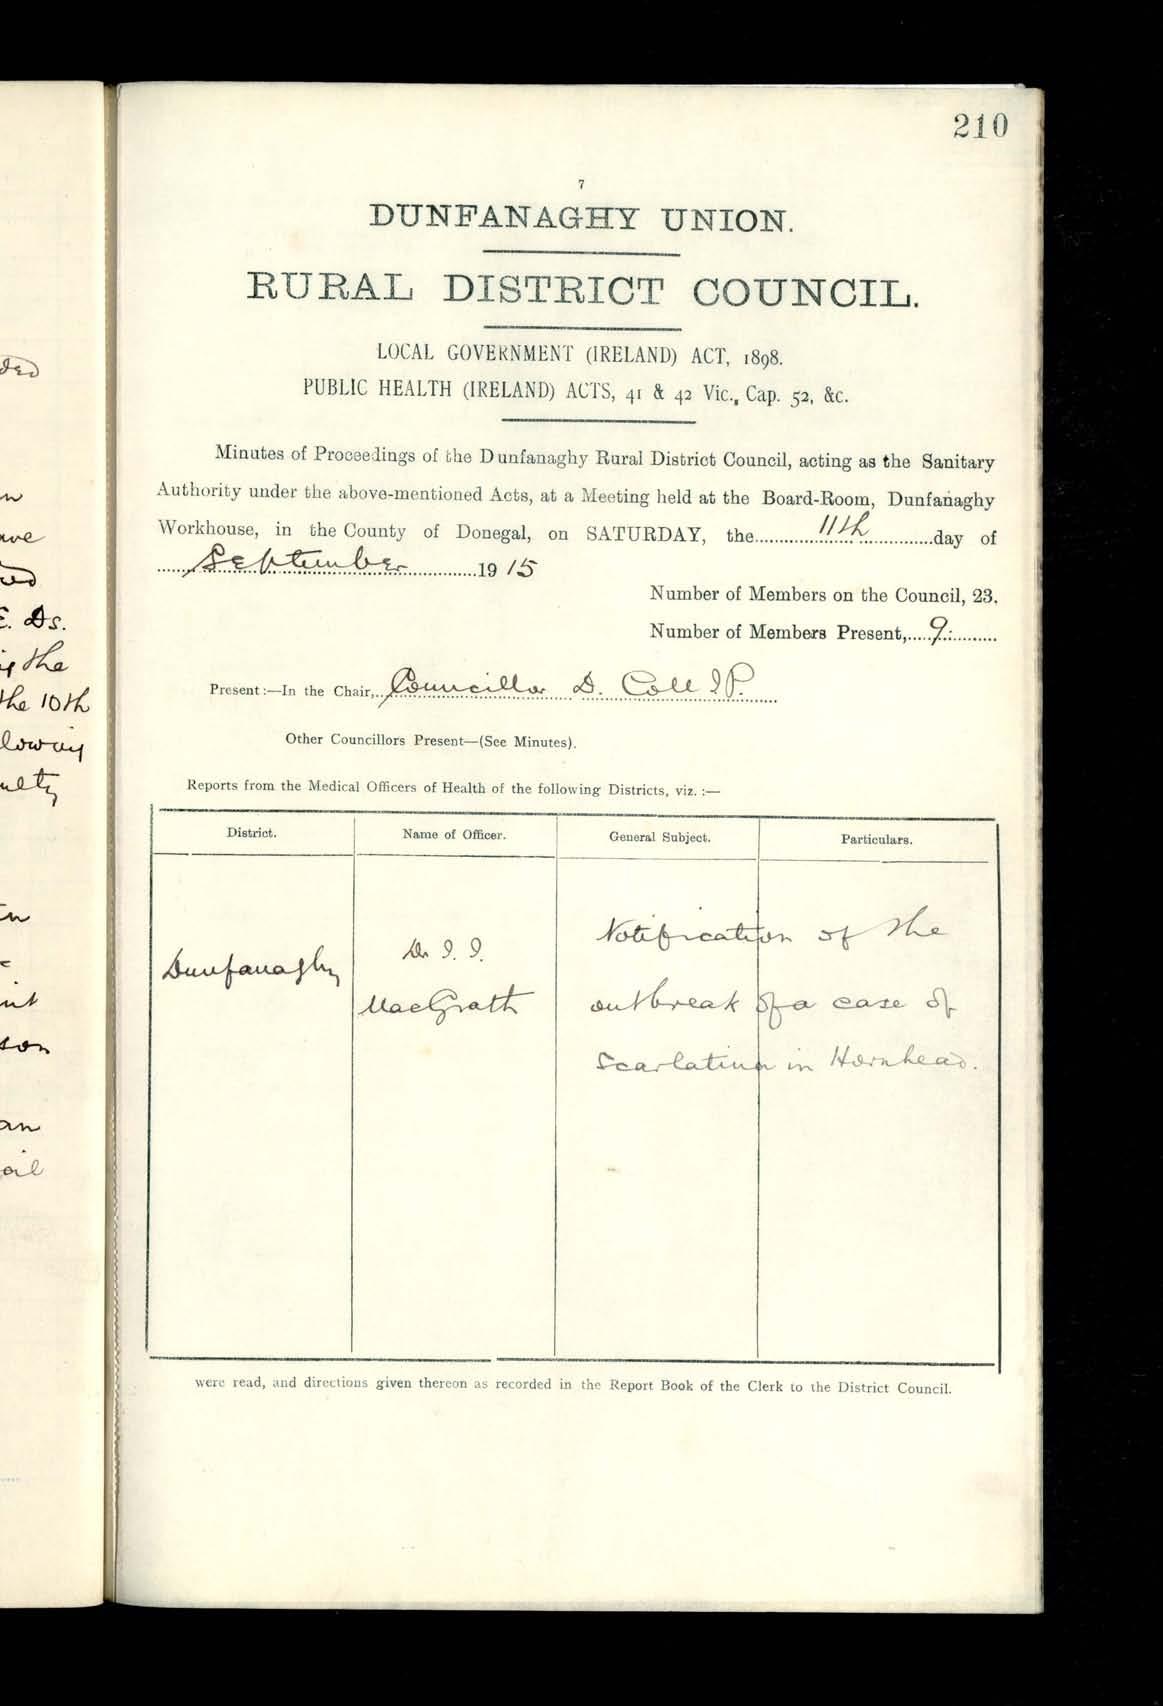 210
7
DUNFANAGHY UNION.
RURAL DISTRICT COUNCIL.
LOCAL GOVERNMENT (IRELAND) ACT, 1898.
PUBLIC HEALTH (IRELAND) ACTS, 41 & 42 Vic., Cap. 52, &c.
Minutes of Proceedings of the Dunfanaghy Rural District Council, acting as the Sanitary
Authority under the above-mentioned Acts, at a Meeting held at the Board-Room, Dunfanaghy
Workhouse, in the County of Donegal, on SATURDAY, the 11th day of
September 1915
Number of Members on the Council, 23.
Number of Members Present, 9
Present:—In the Chair, Councillor D. Coll J.P.
Other Councillors Present—(See Minutes).
Reports from the Medical Officers of Health of the following Districts, viz. :—
District. Name of Officer. General Subject. Particulars.
Notification of the
Dunfanaghy Dr J. J.
MacGrath outbreak of a case of
Scarlatina in Hornhead.
were read, and directions given thereon as recorded in the Report Book of the Clerk to the District Council.
E. Ds.
the
the 10th